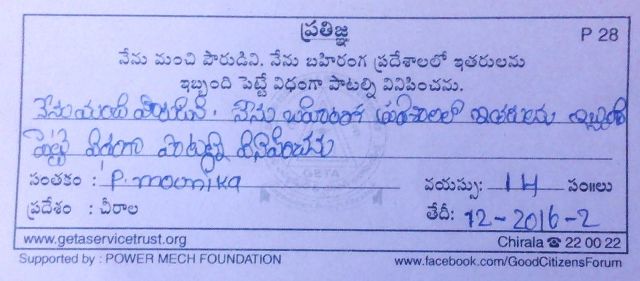 ప్రతిజ్ఞ
P 28
నేను మంచి పౌరుడిని. నేను బహిరంగ ప్రదేశాలలో ఇతరులను
ఇబ్బంది పెట్టే విధంగా పాటల్ని వినిపించను.
నేను మంచి పౌరుడిని. నేను బహిరంగ ప్రదేశాలలో ఇతరులను ఇబ్బంది
పెట్టే విధంగా పాటల్ని వినిపించను
సంతకం : P. mounika వయస్సు: 14 సం॥లు
ప్రదేశం : చీరాల తేదీ: 12-2016-2
www.getaservicetrust.org Chirala ☎ 22 00 22
Supported by : POWER MECH FOUNDATION www.facebook.com/GoodCitizensForum